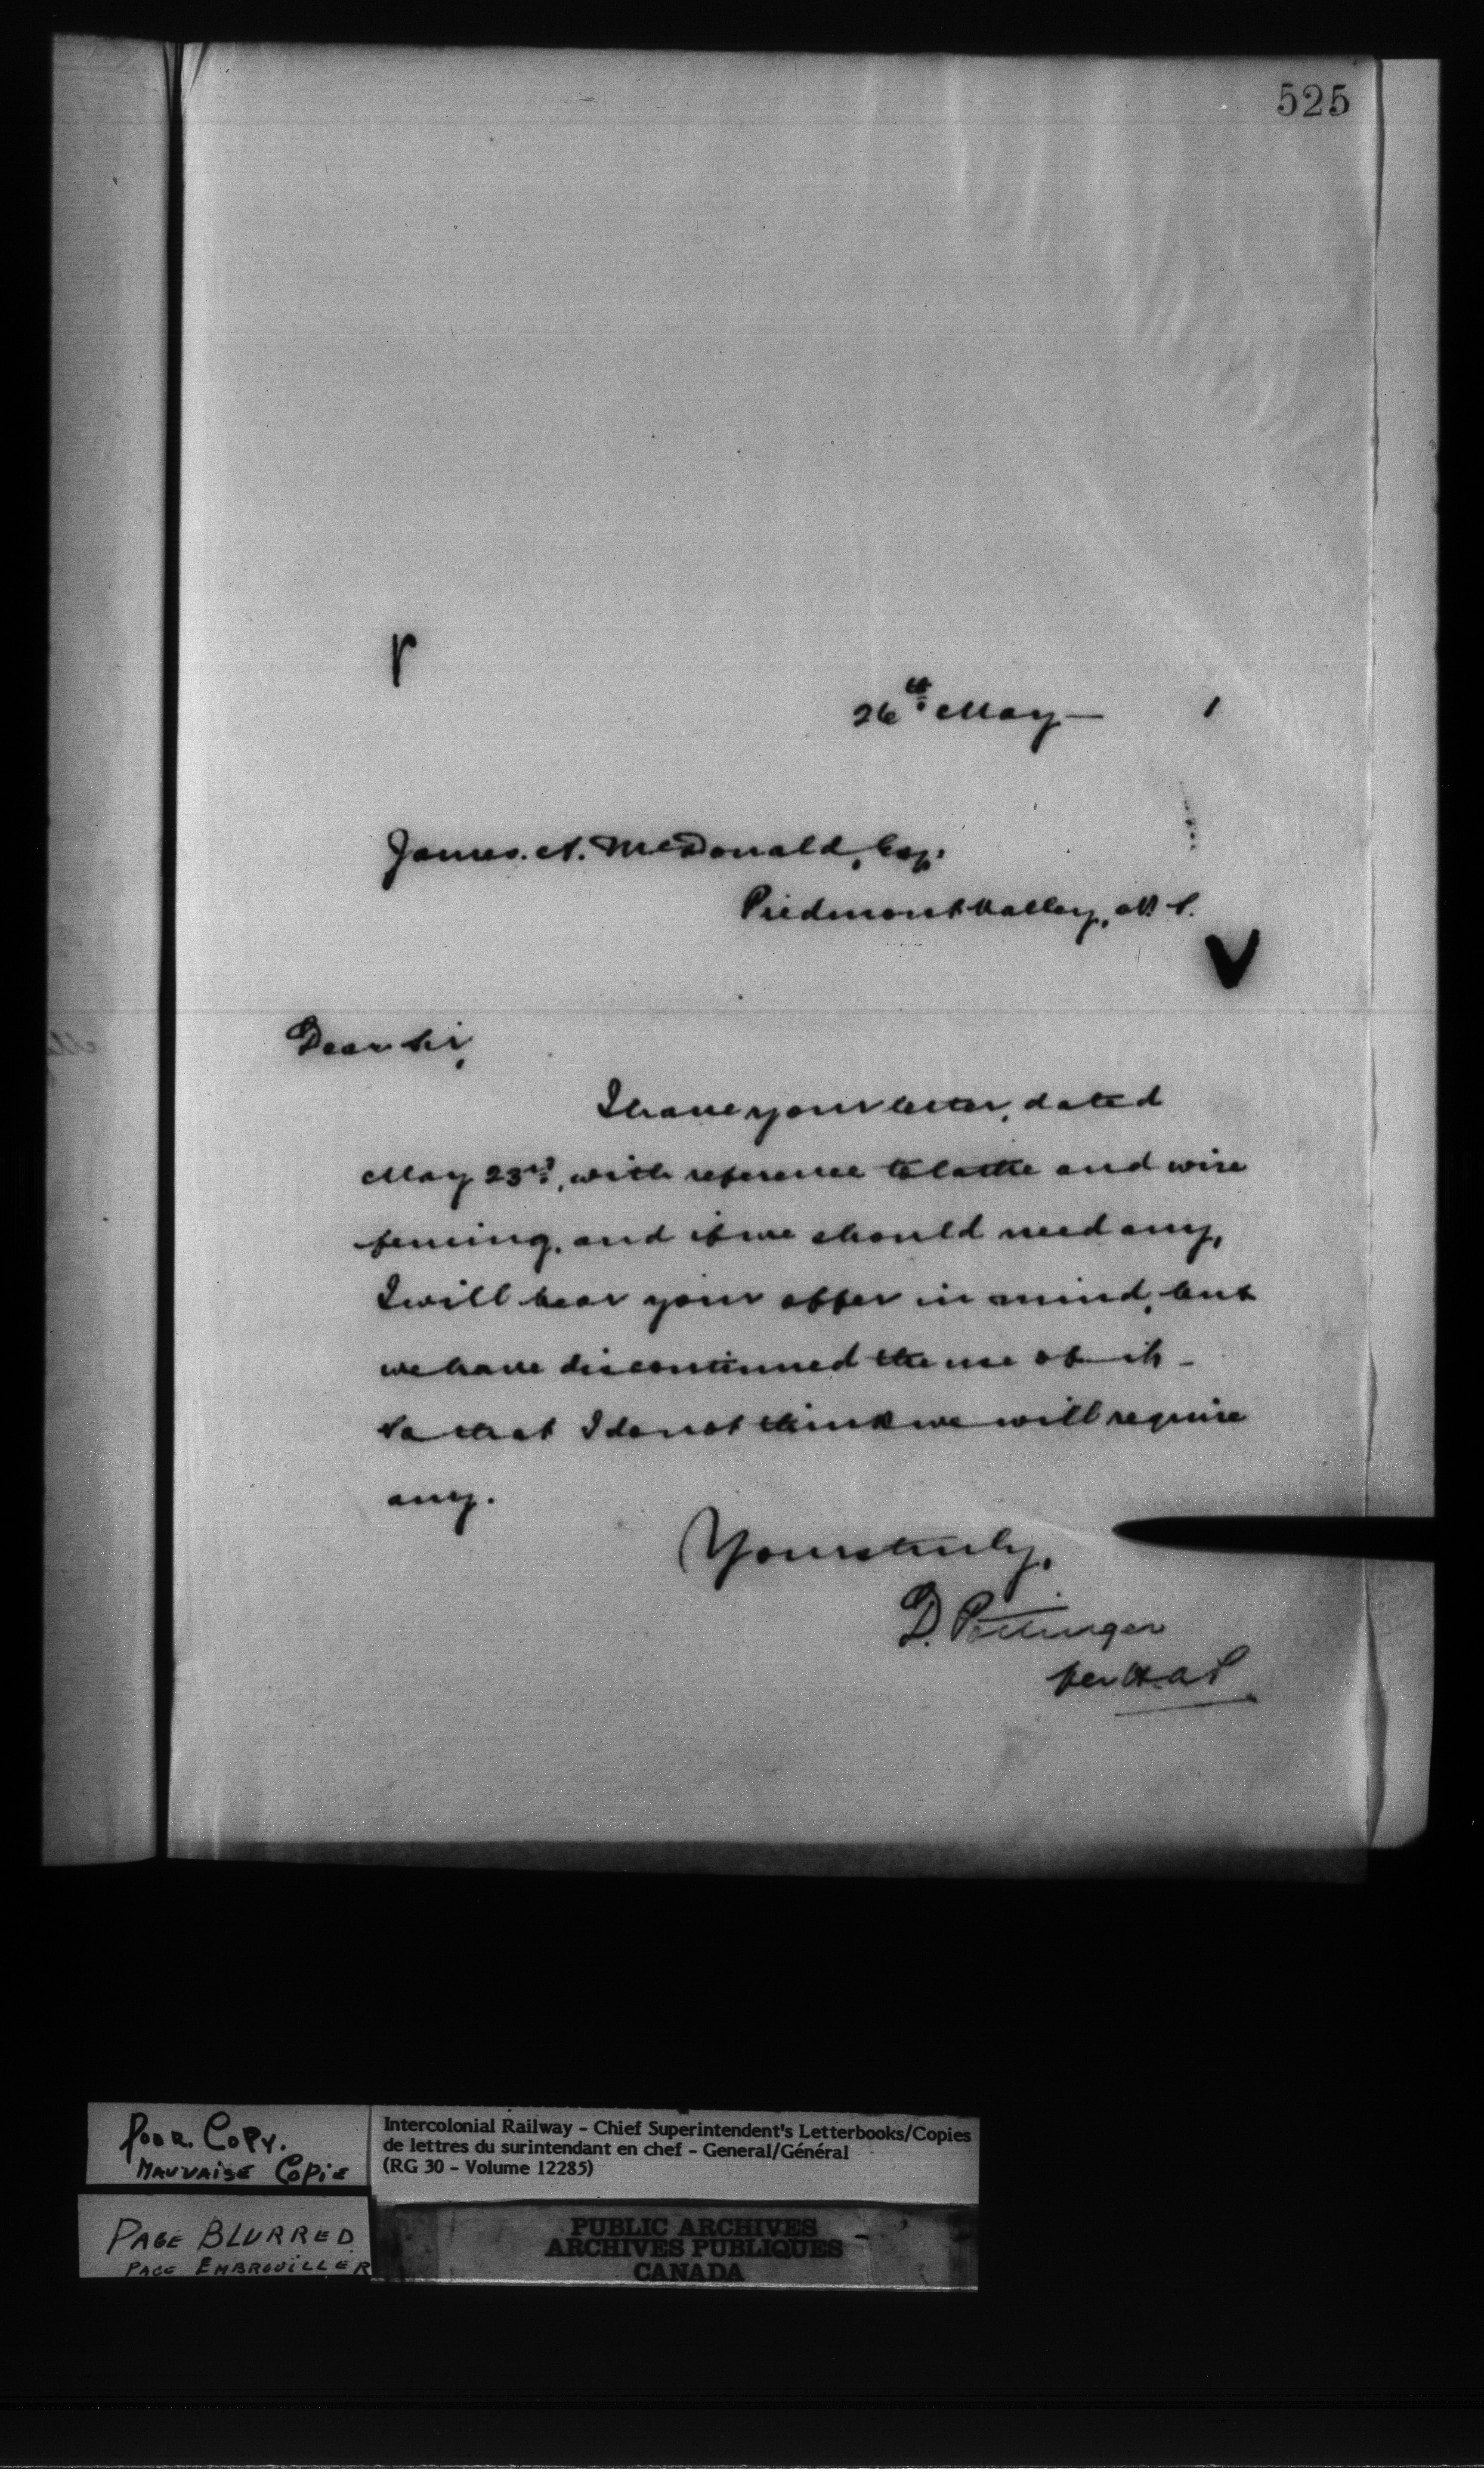 525
26th May — 1
James A. McDonald, Esq.
Piedmont Valley, N.S.
Dear Sir,
I have your letter, dated
May 23rd, with reference to lathe and wire
fencing, and if we should need any,
I will bear your offer in mind, but
we have discontinued the use of it -
So that I do not think we will require
any.
Yours truly,
D. Pottinger
per
Poor Copy.
Mauvaise Copie
Page Blurred
Page Embrouiller
Intercolonial Railway - Chief Superintendent's Letterbooks/Copies
de lettres du surintendant en chef - General/Général
(RG 30 - Volume 12285)
PUBLIC ARCHIVES
ARCHIVES PUBLIQUES
CANADA